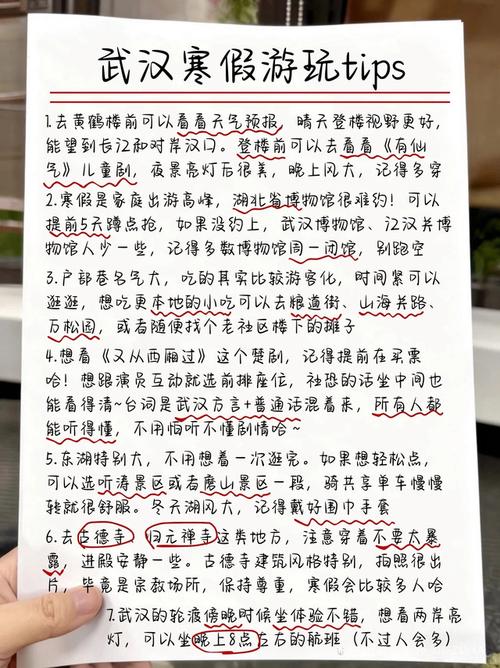 武汉寒假游玩tips
1.去黄鹤楼前可以看看天气预报，晴天登楼视野更好，
能望到长江和对岸汉口。登楼前可以去看看《有仙
气》儿童剧，夜景亮灯后很美，晚上风大，记得多穿
2.寒假是家庭出游高峰，湖北省博物馆很难约！可以
提前5天蹲点抢，如果没约上，武汉博物馆、江汉关博
物馆人少一些，记得多数博物馆周一闭馆，别跑空
3.户部巷名气大，吃的其实比较游客化，时间紧可以
逛逛，想吃更本地的小吃可以去粮道街、山海关路、
万松园，或者随便找个老社区楼下的摊子
4.想看《又从西厢过》这个楚剧，记得提前在买票
哈！想跟演员互动就选前排座位，社恐的话坐中间也
能看得清~台词是武汉方言+普通话混着来，所有人都
能听得懂，不用怕听不懂剧情哈~
5.东湖特别大，不用想着一次逛完。如果想轻松点，
可以选听涛景区或者磨山景区一段，骑共享单车慢慢
转就很舒服。冬天湖风大，记得戴好围巾手套
6.去古德寺、归元禅寺这类地方，注意穿着不要太暴
露，进殿安静一些。古德寺建筑风格特别，拍照很出
片，毕竟是宗教场所，保持尊重，寒假会比较多人哈
7.武汉的轮渡傍晚时候坐体验不错，想看两岸亮
灯，可以坐晚上8点左右的航班（不过人会多）